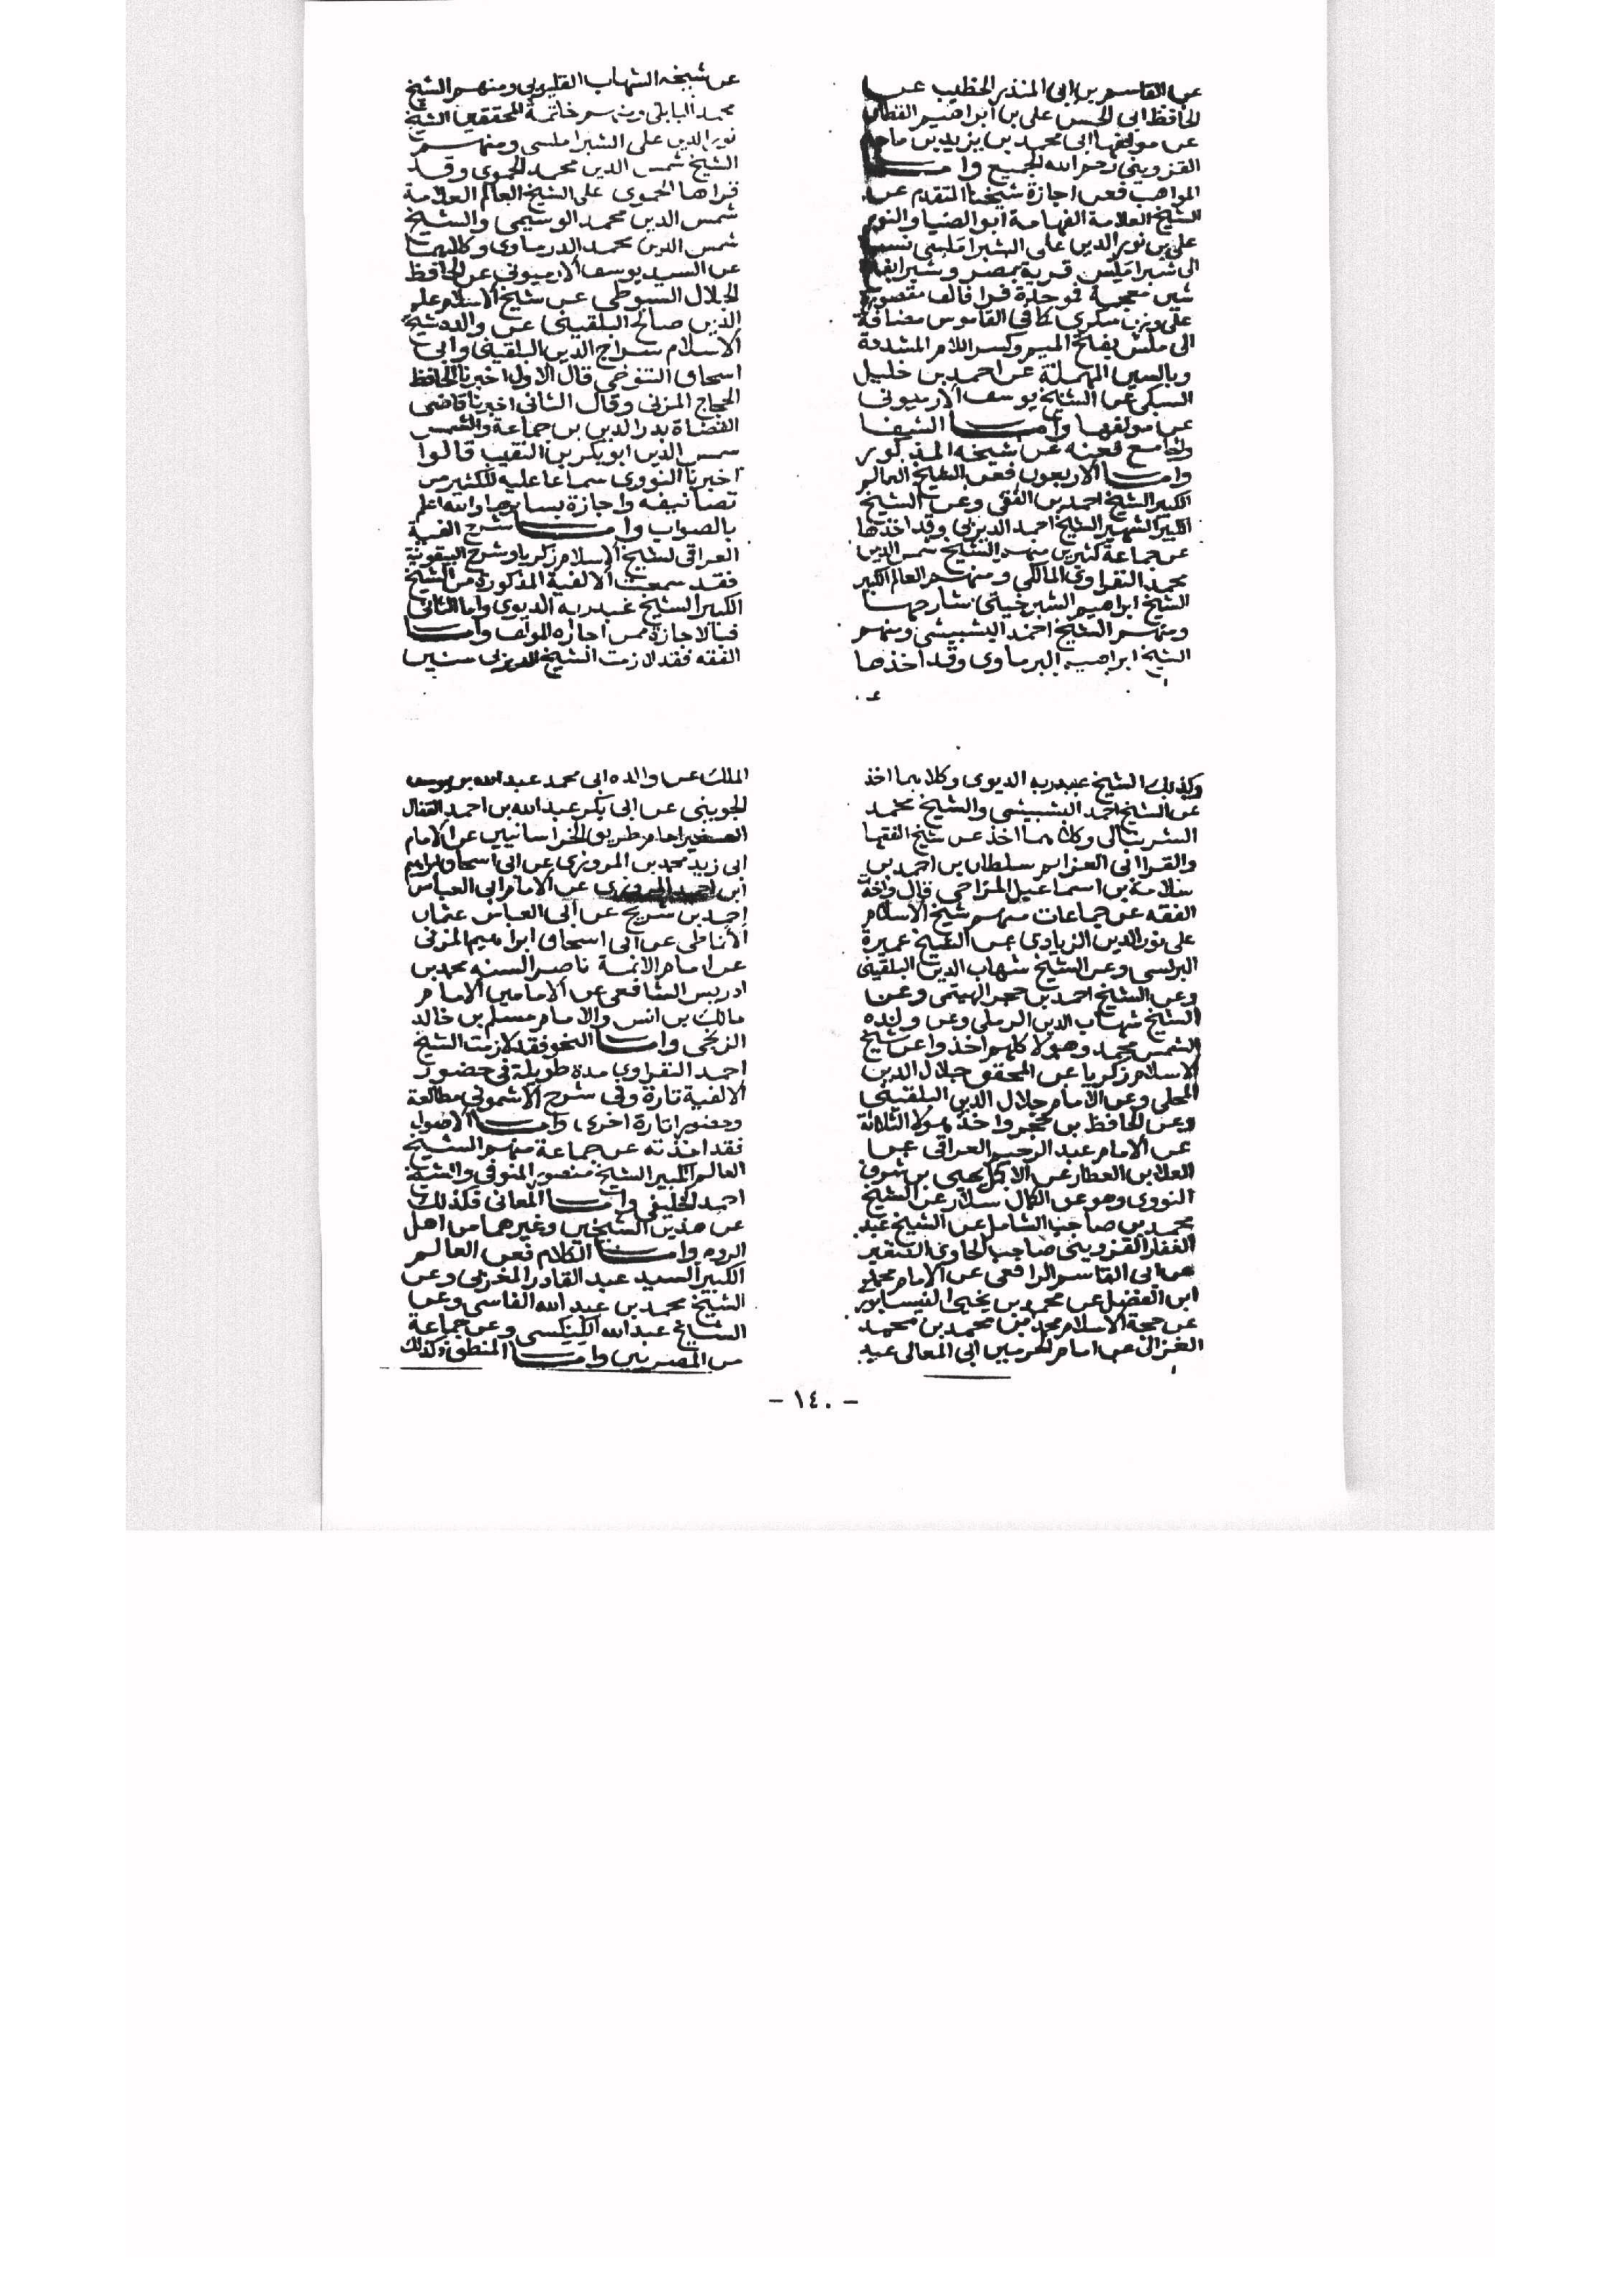 عن القاسم بن ابى المنذر الخطيب عن
الحافظ ابى الحسن على بن ابراهيم القطان
عن مولفها ابى محمد بن يزيد بن ماجه
القزوينى رحم الله الجميع وامــا
المواهب فعن اجازة شيخنا المتقدم عن
الشيخ العلامة الفهامة ابو الضيا والنور
على بن نور الدين على الشبراملسى نسبة
الى شبراملس قرية بمصر وشبرا بفتح
شين معجمة فموحدة فرا فالف مقصورة
على وزن سكرى كما فى القاموس مضافة
الى ملس بفتح الميم وكسر اللام المشددة
وبالسين المهملة عن احمد بن خليل
السبكى عن الشيخ يوسف الارميونى
عن مولفها وامــا الشفا
والجامع فعنه عن شيخه المذكور
وامــا الاربعون فعن الشيخ العالم
الكبير الشيخ احمد بن الفقى وعن الشيخ
الكبير الشهير الشيخ احمد الديربى وقد اخذها
عن جماعة كثيرين منهم الشيخ شمس الدين
محمد النفراوى المالكى ومنهم العالم الكبير
الشيخ ابراهيم الشبرخيتى شارحها
ومنهم الشيخ احمد البشبيشى ومنهم
الشيخ ابراهيم البرماوى وقد اخذها
عن شيخه الشهاب القليوبى ومنهم الشيخ
محمد البابلى ومنهم خاتمة المحققين الشيخ
نور الدين على الشبراملسى ومنهم
الشيخ شمس الدين محمد الحموى وقد
قراها الحموى على الشيخ العالم العلامة
شمس الدين محمد الوسيمى والشيخ
شمس الدين محمد الدرماوى وكلاهما
عن السيد يوسف الارميونى عن الحافظ
الجلال السيوطى عن شيخ الاسلام علم
الدين صالح البلقينى عن والده شيخ
الاسلام سراج الدين البلقينى وابى
اسحاق التنوخى قال الاول اخبرنا الحافظ
الحجاج المزنى وقال الثانى اخبرنا قاضى
القضاة بدر الدين بن جماعة والشمس
شمس الدين ابو بكر بن النقيب قالوا
اخبرنا النووى سماعا عليه للكثير من
تصانيفه واجازة بسايرها والله اعلم
بالصواب وامــا شرح الفية
العراقى لشيخ الاسلام زكريا وشرح البيقونية
فقد سمعت الالفية المذكورة من الشيخ
الكبير الشيخ عبدربه الديوى واما الثانى
فبالاجازة من اجازه المولف وامــا
الفقه فقد لازمت الشيخ الديربى سنين
وكذلك الشيخ عبدربه الديوى وكلاهما اخذ
عن الشيخ احمد البشبيشى والشيخ محمد
الشرنبالى وكلاهما اخذ عن شيخ الفقها
والقرا ابى العزايم سلطان بن احمد بن
سلامة بن اسماعيل المزاحى قال واخذت
الفقه عن جماعات منهم شيخ الاسلام
على نور الدين الزيادى عن الشيخ عميرة
البرلسى وعن الشيخ شهاب الدين البلقينى
وعن الشيخ احمد بن حجر الهيتمى وعن
الشيخ شهاب الدين الرملى وعن ولده
الشمس محمد وهولا كلهم اخذوا عن شيخ
الاسلام زكريا عن المحقق جلال الدين
المحلى وعن الامام جلال الدين البلقينى
وعن الحافظ بن حجر واخذ هولا الثلاثة
عن الامام عبد الرحيم العراقى عن
العلا بن العطار عن الاكمل يحيى بن شرف
النووى وهو عن الكمال سلار عن الشيخ
محمد بن صاحب الشامل عن الشيخ عبد
الغفار القزوينى صاحب الحاوى الصغير
عن ابى القاسم الرافعى عن الامام محمد
ابن الفضل عن محمد بن يحيى النيسابورى
عن حجة الاسلام محمد بن محمد بن محمد
الغزالى عن امام الحرمين ابى المعالى عبد
الملك عن والده ابى محمد عبد الله بن يوسف
الجوينى عن ابى بكر عبد الله بن احمد القفال
الصغير امام طريق الخراسانيين عن الامام
ابى زيد محمد بن المروزى عن ابى اسحاق ابراهيم
ابن احمد المروزى عن الامام ابى العباس
احمد بن سريج عن ابى العباس عثمان
الأناطى عن ابى اسحاق ابراهيم المزنى
عن امام الائمة ناصر السنه محمد بن
ادريس الشافعى عن الامامين الامام
مالك بن انس والامام مسلم بن خالد
الزنجى وامــا النحو فقد لازمت الشيخ
احمد النفراوى مدة طويلة فى حضور
الالفية تارة وفى شرح الاشمونى مطالعة
وحضورا تارة اخرى وامــا الاصول
فقد اخذته عن جماعة منهم الشيخ
العالم الكبير الشيخ منصور المنوفى والشيخ
احمد الخليفى وامــا المعانى فكذلك
عن هذين الشيخين وغيرهما من اهل
الروم وامــا الكلام فعن العالم
الكبير السيد عبد القادر المغربى وعن
الشيخ محمد بن عبد الله الفاسى وعن
الشيخ عبد الله الكنكسى وعن جماعة
من المصريين وامــا المنطق فكذلك
- ١٤٠ -